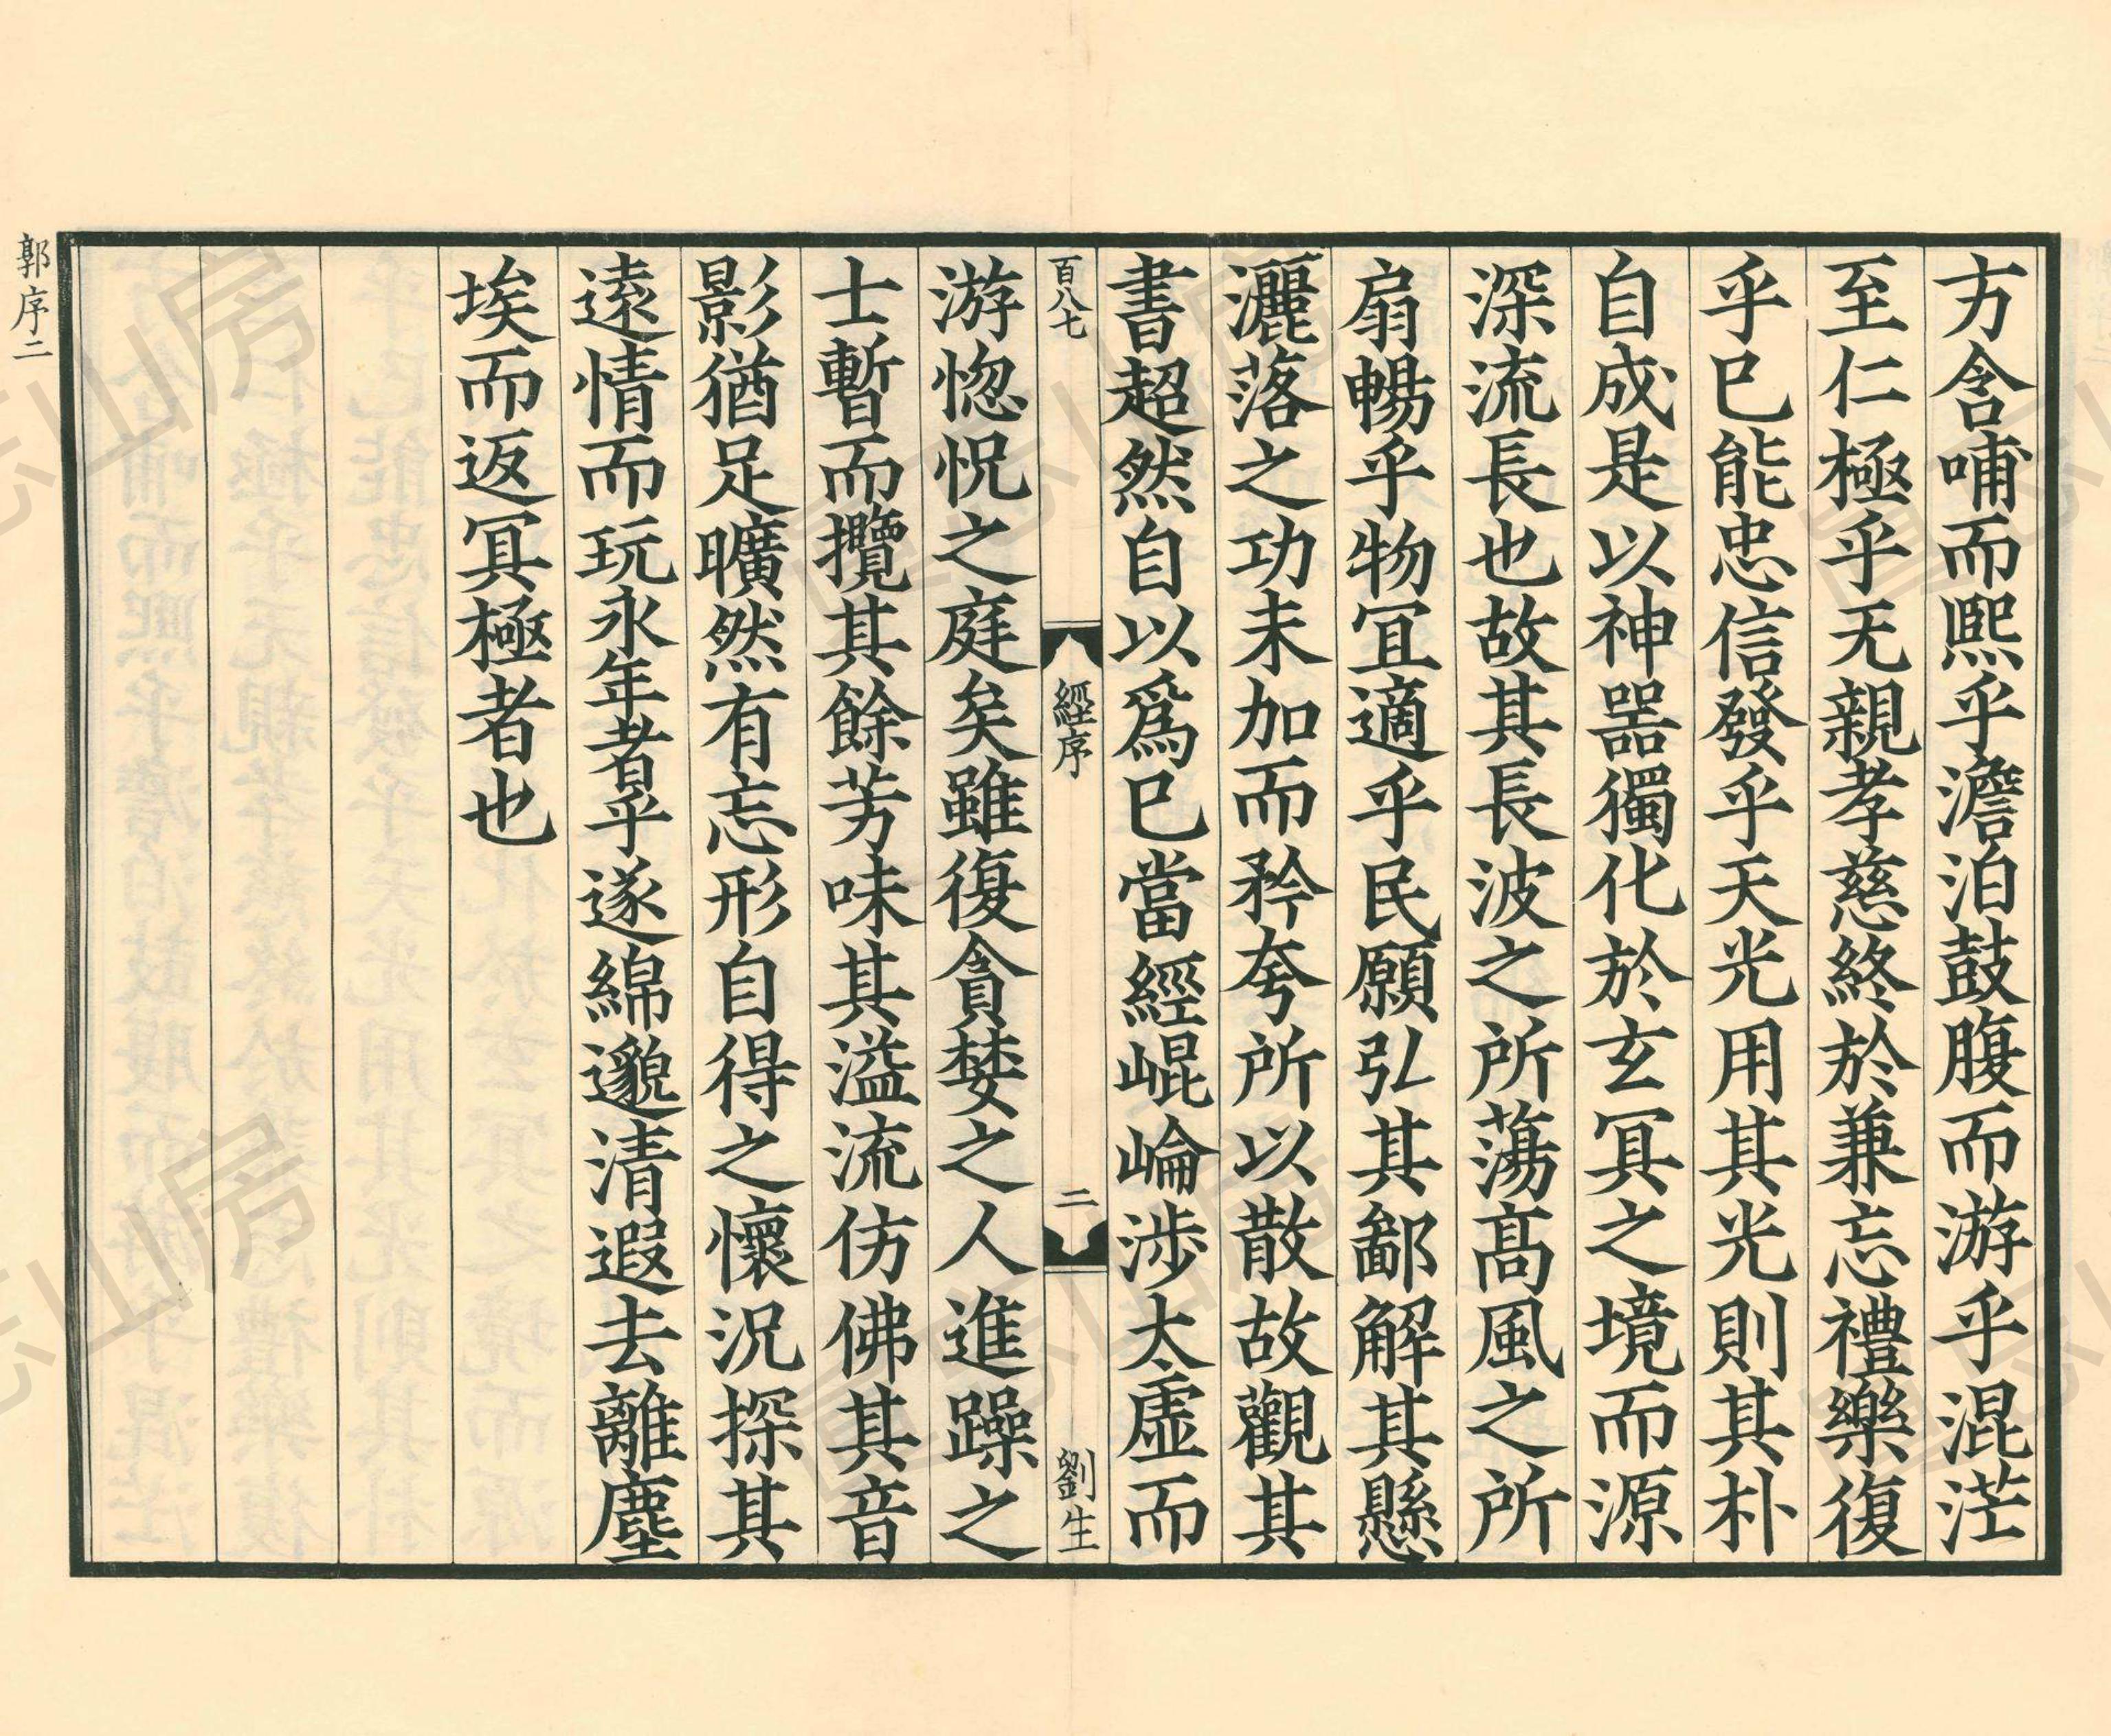 方含哺而熙乎澹泊鼓腹而游乎混茫
至仁極乎无親孝慈終於兼忘禮樂復
乎已能忠信發乎天光用其光則其朴
自成是以神器獨化於玄冥之境而源
深流長也故其長波之所蕩髙風之所
扇暢乎物冝適乎民願弘其鄙解其懸
灑落之功未加而矜夸所以散故觀其
書超然自以爲已當經崐崘涉太虛而
百八七
經序
二
劉生
游惚怳之庭矣雖復貪婪之人進躁之
士暫而攬其餘芳味其溢流仿佛其音
影猶足曠然有忘形自得之懷況探其
逺情而玩永年者乎遂綿邈清遐去離塵
埃而返冥極者也
郭序二